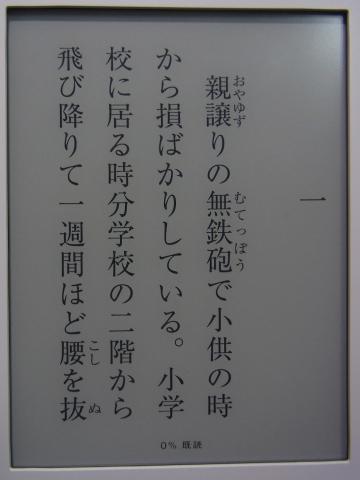 一
親譲りの無鉄砲で小供の時
おやゆず
むてっぽう
から損ばかりしている。小学
校に居る時分学校の二階から
飛び降りて一週間ほど腰を抜
こし
ぬ
0% 既読